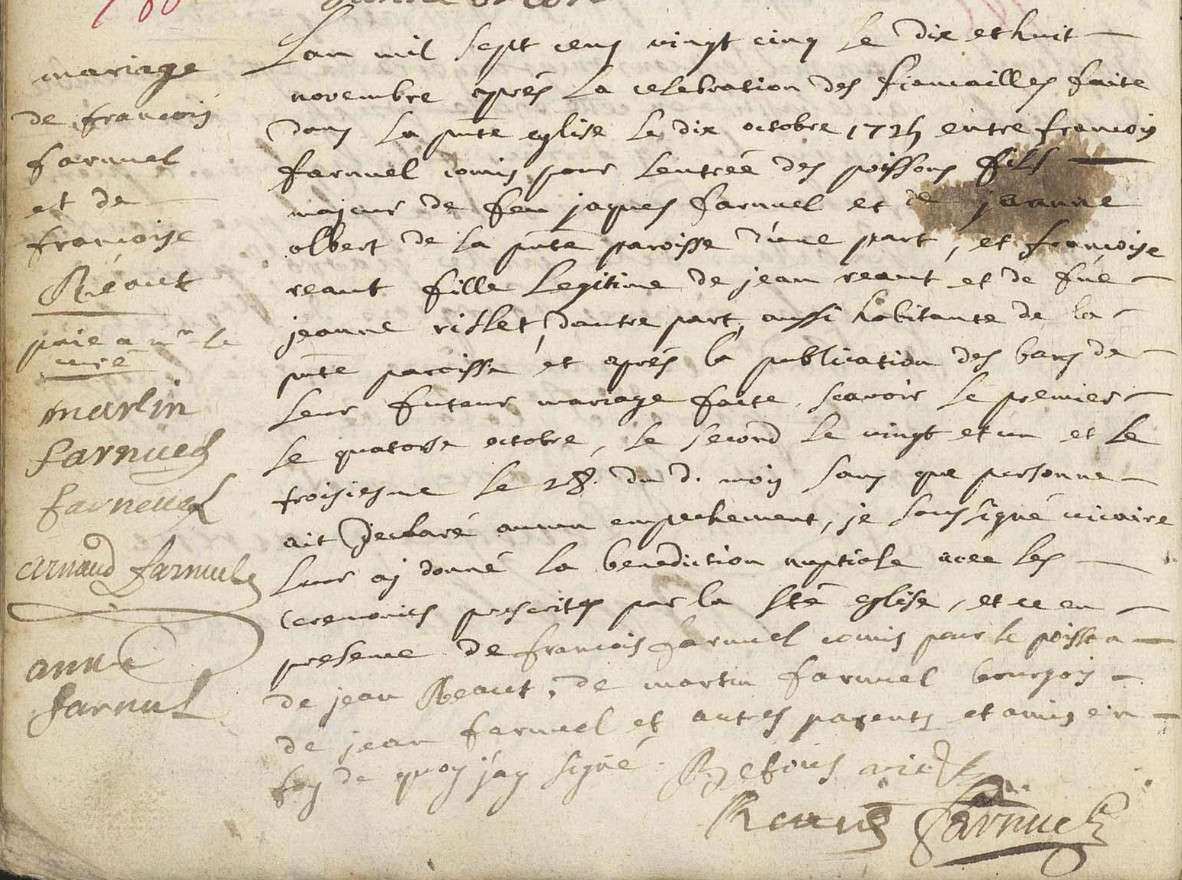 mariage
de francois
farnuel
et de
francoise
Réaut
paie a mr le
curé
martin
farnuel
farneuel
arnaud farnuel
anne
farnuel
Lan mil sept cens vingt cinq le dix et huit
novembre apres la celebration des fiancailles faite
dans la pnte eglise le dix octobre 1725 entre francois
farnuel comis pour lentrée des poissons fils
majeur de feu jaques farnuel et de jeanne
olbert de la pnte paroisse d'une part, et francoise
reaut fille legitime de jean reaut et de fue
jeanne rillet, dautre part, aussi habitante de la
pnte paroisse et apres la publication des bans de
leur futeur mariage faite, scavoir le premier
le quatorse octobre, le second le vingt et un et le
troisiesme le 28. du d. mois sans que personne
ait declaré aucun empechement, je soussigné vicaire
leur aj donné la benediction nuptiale avec les
ceremonies prescrites par la ste eglise, et ce en
presence de francois farnuel comis pour le poisson
de jean Reaut, de martin farnuel bourgois
de jean farnuel et autres parents et amis en
foy de quoy j'ay signé. vic
Reaut farnuel